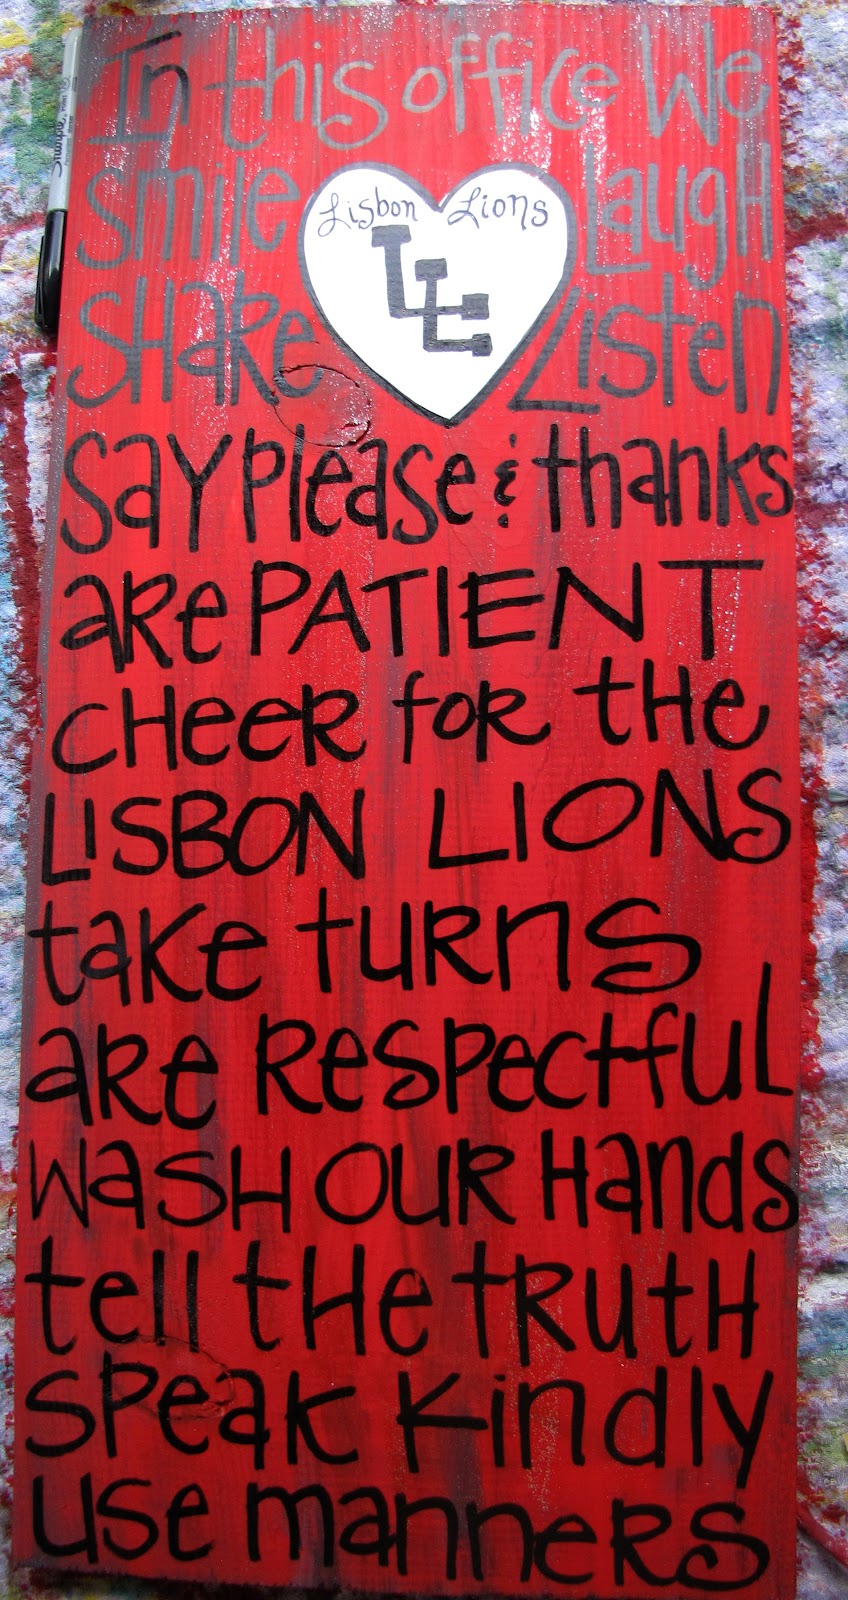 In this office We
smile Laugh
Lisbon Lions
LL
SHARe Listen
say please & thanks
are PATIENT
CHeeR for tHe
LISBON LIONS
take turns
are Respectful
wasH OUR Hands
tell tHe tRutH
speak kindly
use manneRs
Sharpie